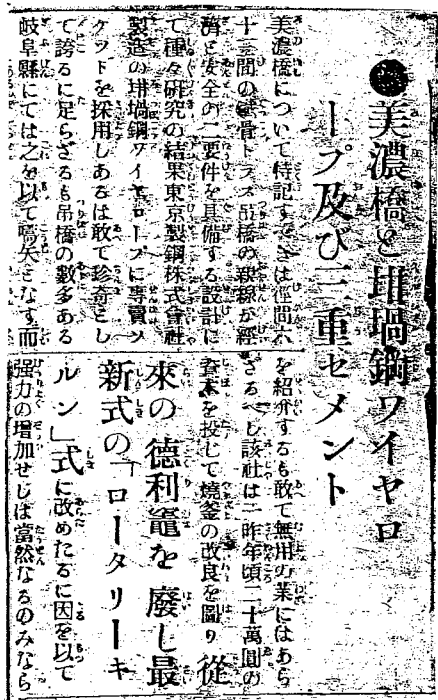 ●美濃橋と坩堝鋼ワイヤロ
ープ及び三重セメント
美濃橋について特記すべきは徑間六
十三間の鐵骨トラス吊橋の新線が經
濟と安全の二要件を具備する設計に
て種々研究の結果東京製鋼株式會社
製造の坩堝鋼ワイヤロープに專賣ソ
ケツトを採用しあるは敢て珍奇とし
て誇るに足らざるも吊橋の數多ある
岐阜縣にては之を以て嚆矢となす而
を紹介するも敢て無用の業にはあら
ざるべし該社は一昨年頃二十萬圓の
資本を投じて燒釜の改良を圖り從
來の德利竈を廢し最
新式の「ロータリーキ
ルン」式に改めたるに因を以て
強力の增加せしは當然なるのみなら